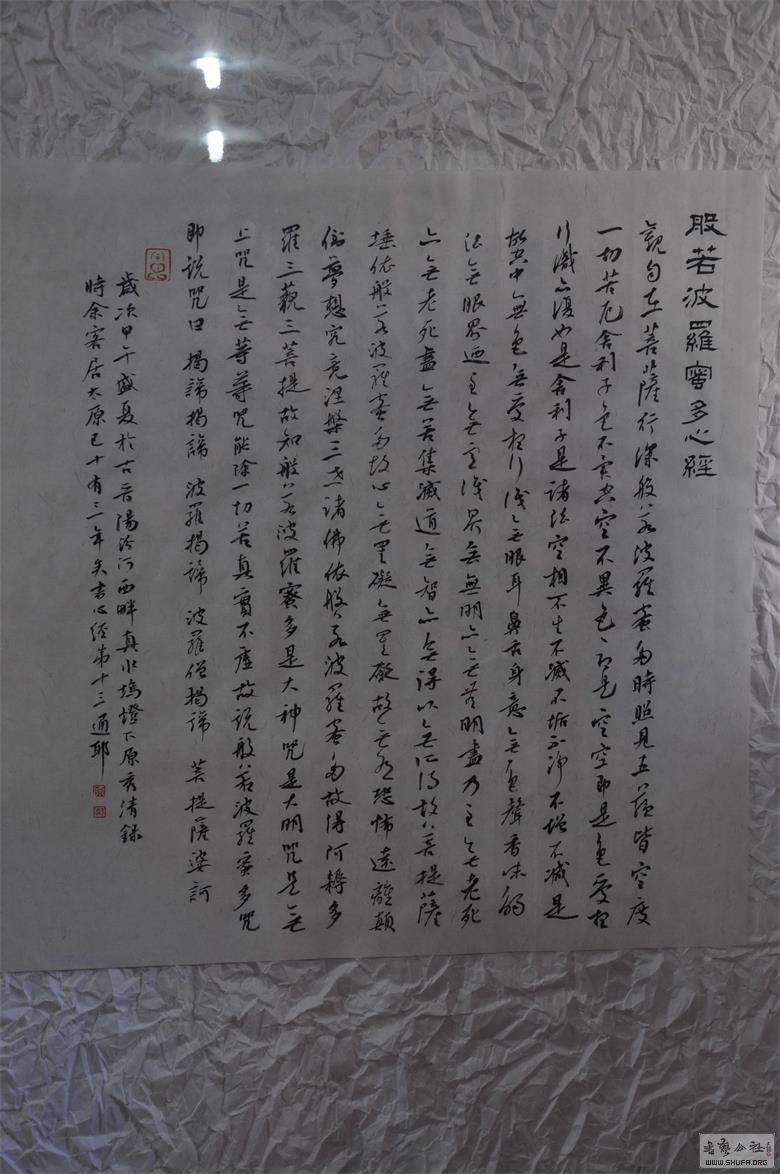 般若波羅蜜多心經
觀自在菩薩行深般若波羅蜜多時照見五蘊皆空度
一切苦厄舍利子色不異空空不異色色即是空空即是色受想
行識亦復如是舍利子是諸法空相不生不滅不垢不淨不增不減是
故空中無色無受想行識無眼耳鼻舌身意無色聲香味觸
法無眼界廼至無意識界無無明亦無無明盡乃至無老死
亦無老死盡無苦集滅道無智亦無得以無所得故菩提薩
埵依般若波羅蜜多故心無罣礙無罣礙故無有恐怖遠離顛
倒夢想究竟涅槃三世諸佛依般若波羅蜜多故得阿耨多
羅三藐三菩提故知般若波羅蜜多是大神咒是大明咒是無
上咒是無等等咒能除一切苦真實不虛故說般若波羅蜜多咒
即說咒曰 揭諦揭諦 波羅揭諦 波羅僧揭諦 菩提薩婆訶
歲次甲午盛夏於古晉陽汾河西畔真水塢燈下原秀清錄
時余客居太原已十有三年矣書心經第十三通耶
書藝公社
WWW.SHUFA.ORG